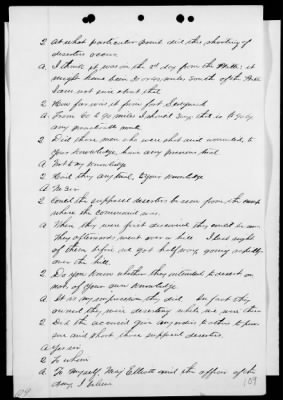 Q At what particular point did the shooting of
deserters occur
A I think it was on the 2d day from the Platte; it
might have been 20 or 25 miles South of the Platte
I am not sure about that
Q How far was it from fort Sedgwick
A From 60 to 70 miles I should say, that is to judge
any
Q Did those men who were shot and wounded, to
your knowledge, have any previous trial
A Not to my Knowledge
Q Had they any trial, to your Knowledge
A No Sir
Q Could the supposed deserters be seen from the camp
where the command was.
A When they were first discovered they could be seen
They afterwards went over a hill I lost sight
of them before we got half way going rapidly
over the hill.
Q Do you Know whether they intended to desert or
not, of your own Knowledge.
A It is my impression they did In fact they
owned they were deserting while we were there
Q Did the accused give any orders to others to pur-
sue and shoot those supposed deserters.
A Yes sir.
Q To whom
A To myself, Maj Elliott and the officer of the
day, I believe
109